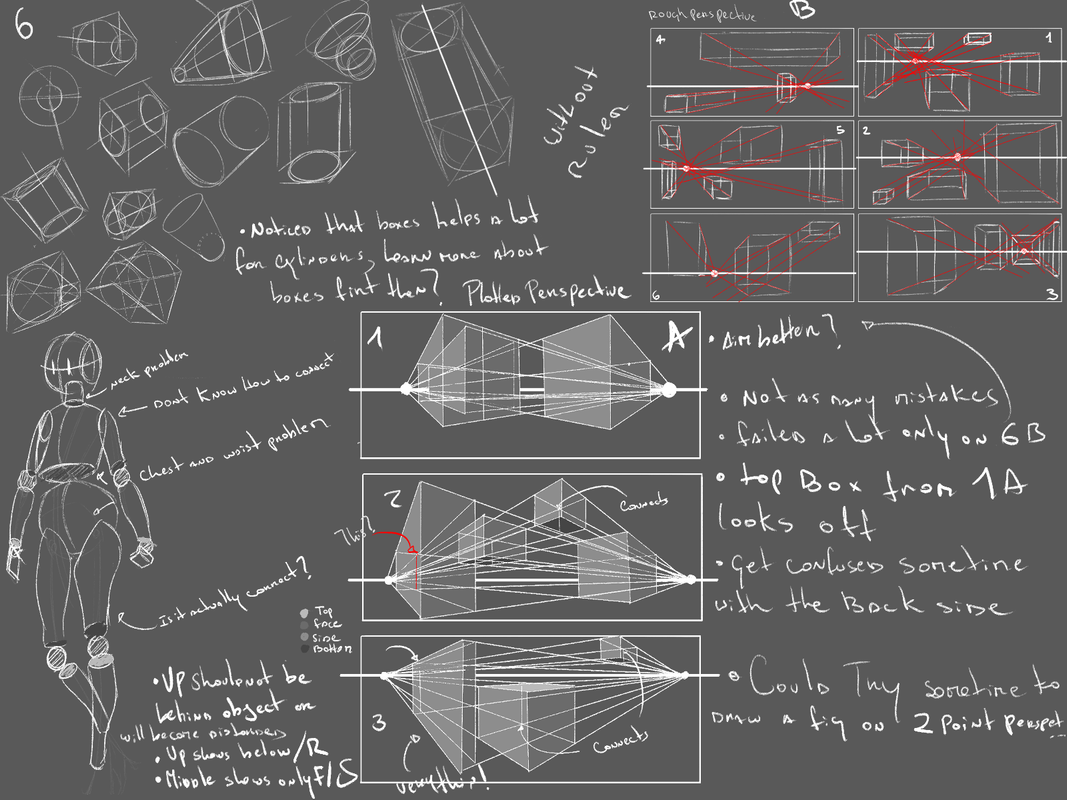 6
without
Ruler
• Noticed that boxes helps a lot
for cylinders, Learn more about
boxes first then? Plotted Perspective
Rough perspective B
4
1
5
2
6
3
Neck problem
Dont know how to correct
Chest and waist problem
Is it actually correct?
• Up should not be
behind object or
will become distorded
• Up shows below/R
• Middle shows only F/S
1 A
2
This?
Connects
Top
face
Side
Bottom
3
Connects
very thin!
• Aim better?
• Not as many mistakes
• failed a lot only on 6B
• top Box from 1A
looks off
• Get confused sometime
with the Back side
• Could Try sometime to
DRAW A fig on 2 point perspet